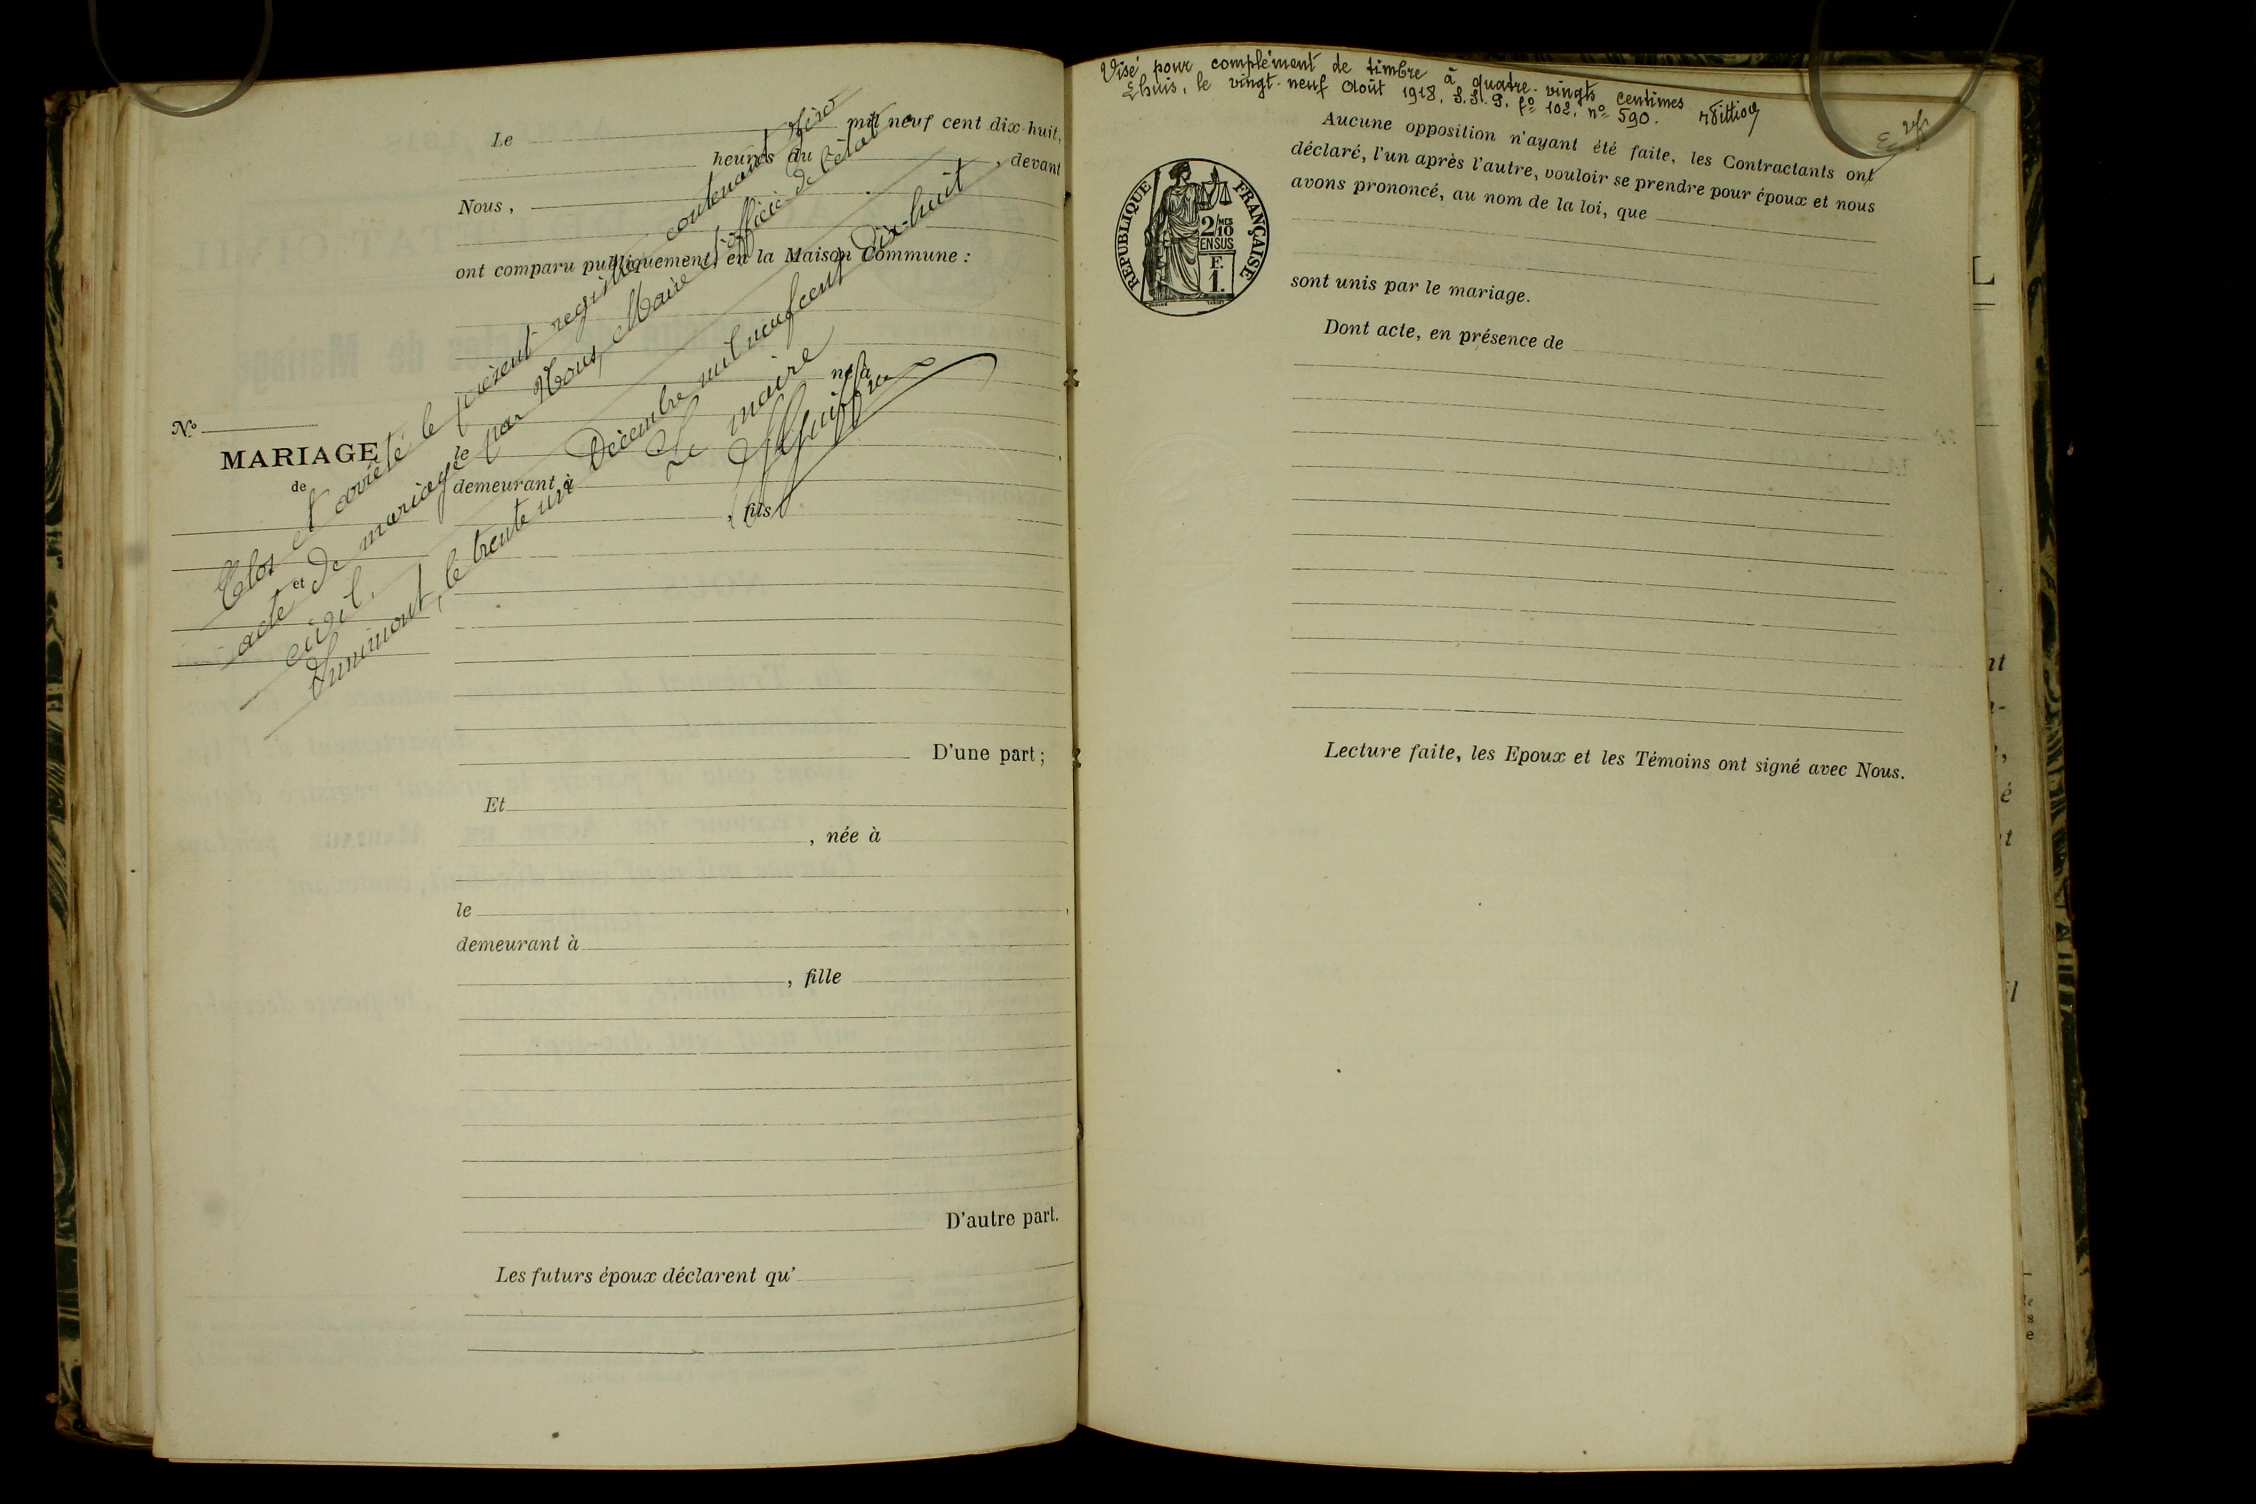 Le mil neuf cent dix-huit,
heures du , devant
Nous,
ont comparu publiquement, en la Maison Commune :
né à
No
MARIAGE
de
et
le
demeurant à
, fils
Clos et arrêté le présent registre contenant zéro
acte de mariage par Nous, Maire et officier de l'état
civil.
Innimont, le trente un Décembre mil neuf cent dix-huit
Le maire
D'une part ;
Et
, née à
le
demeurant à
, fille
D'autre part.
Les futurs époux déclarent qu'
Visé pour complément de timbre à quatre-vingts centimes
Lhuis, le vingt-neuf Août 1918. fo 102, no 590.
RÉPUBLIQUE FRANÇAISE
2/10 MES
EN SUS
F.
1.
Aucune opposition n'ayant été faite, les Contractants ont
déclaré, l'un après l'autre, vouloir se prendre pour époux et nous
avons prononcé, au nom de la loi, que
sont unis par le mariage.
Dont acte, en présence de
Lecture faite, les Epoux et les Témoins ont signé avec Nous.